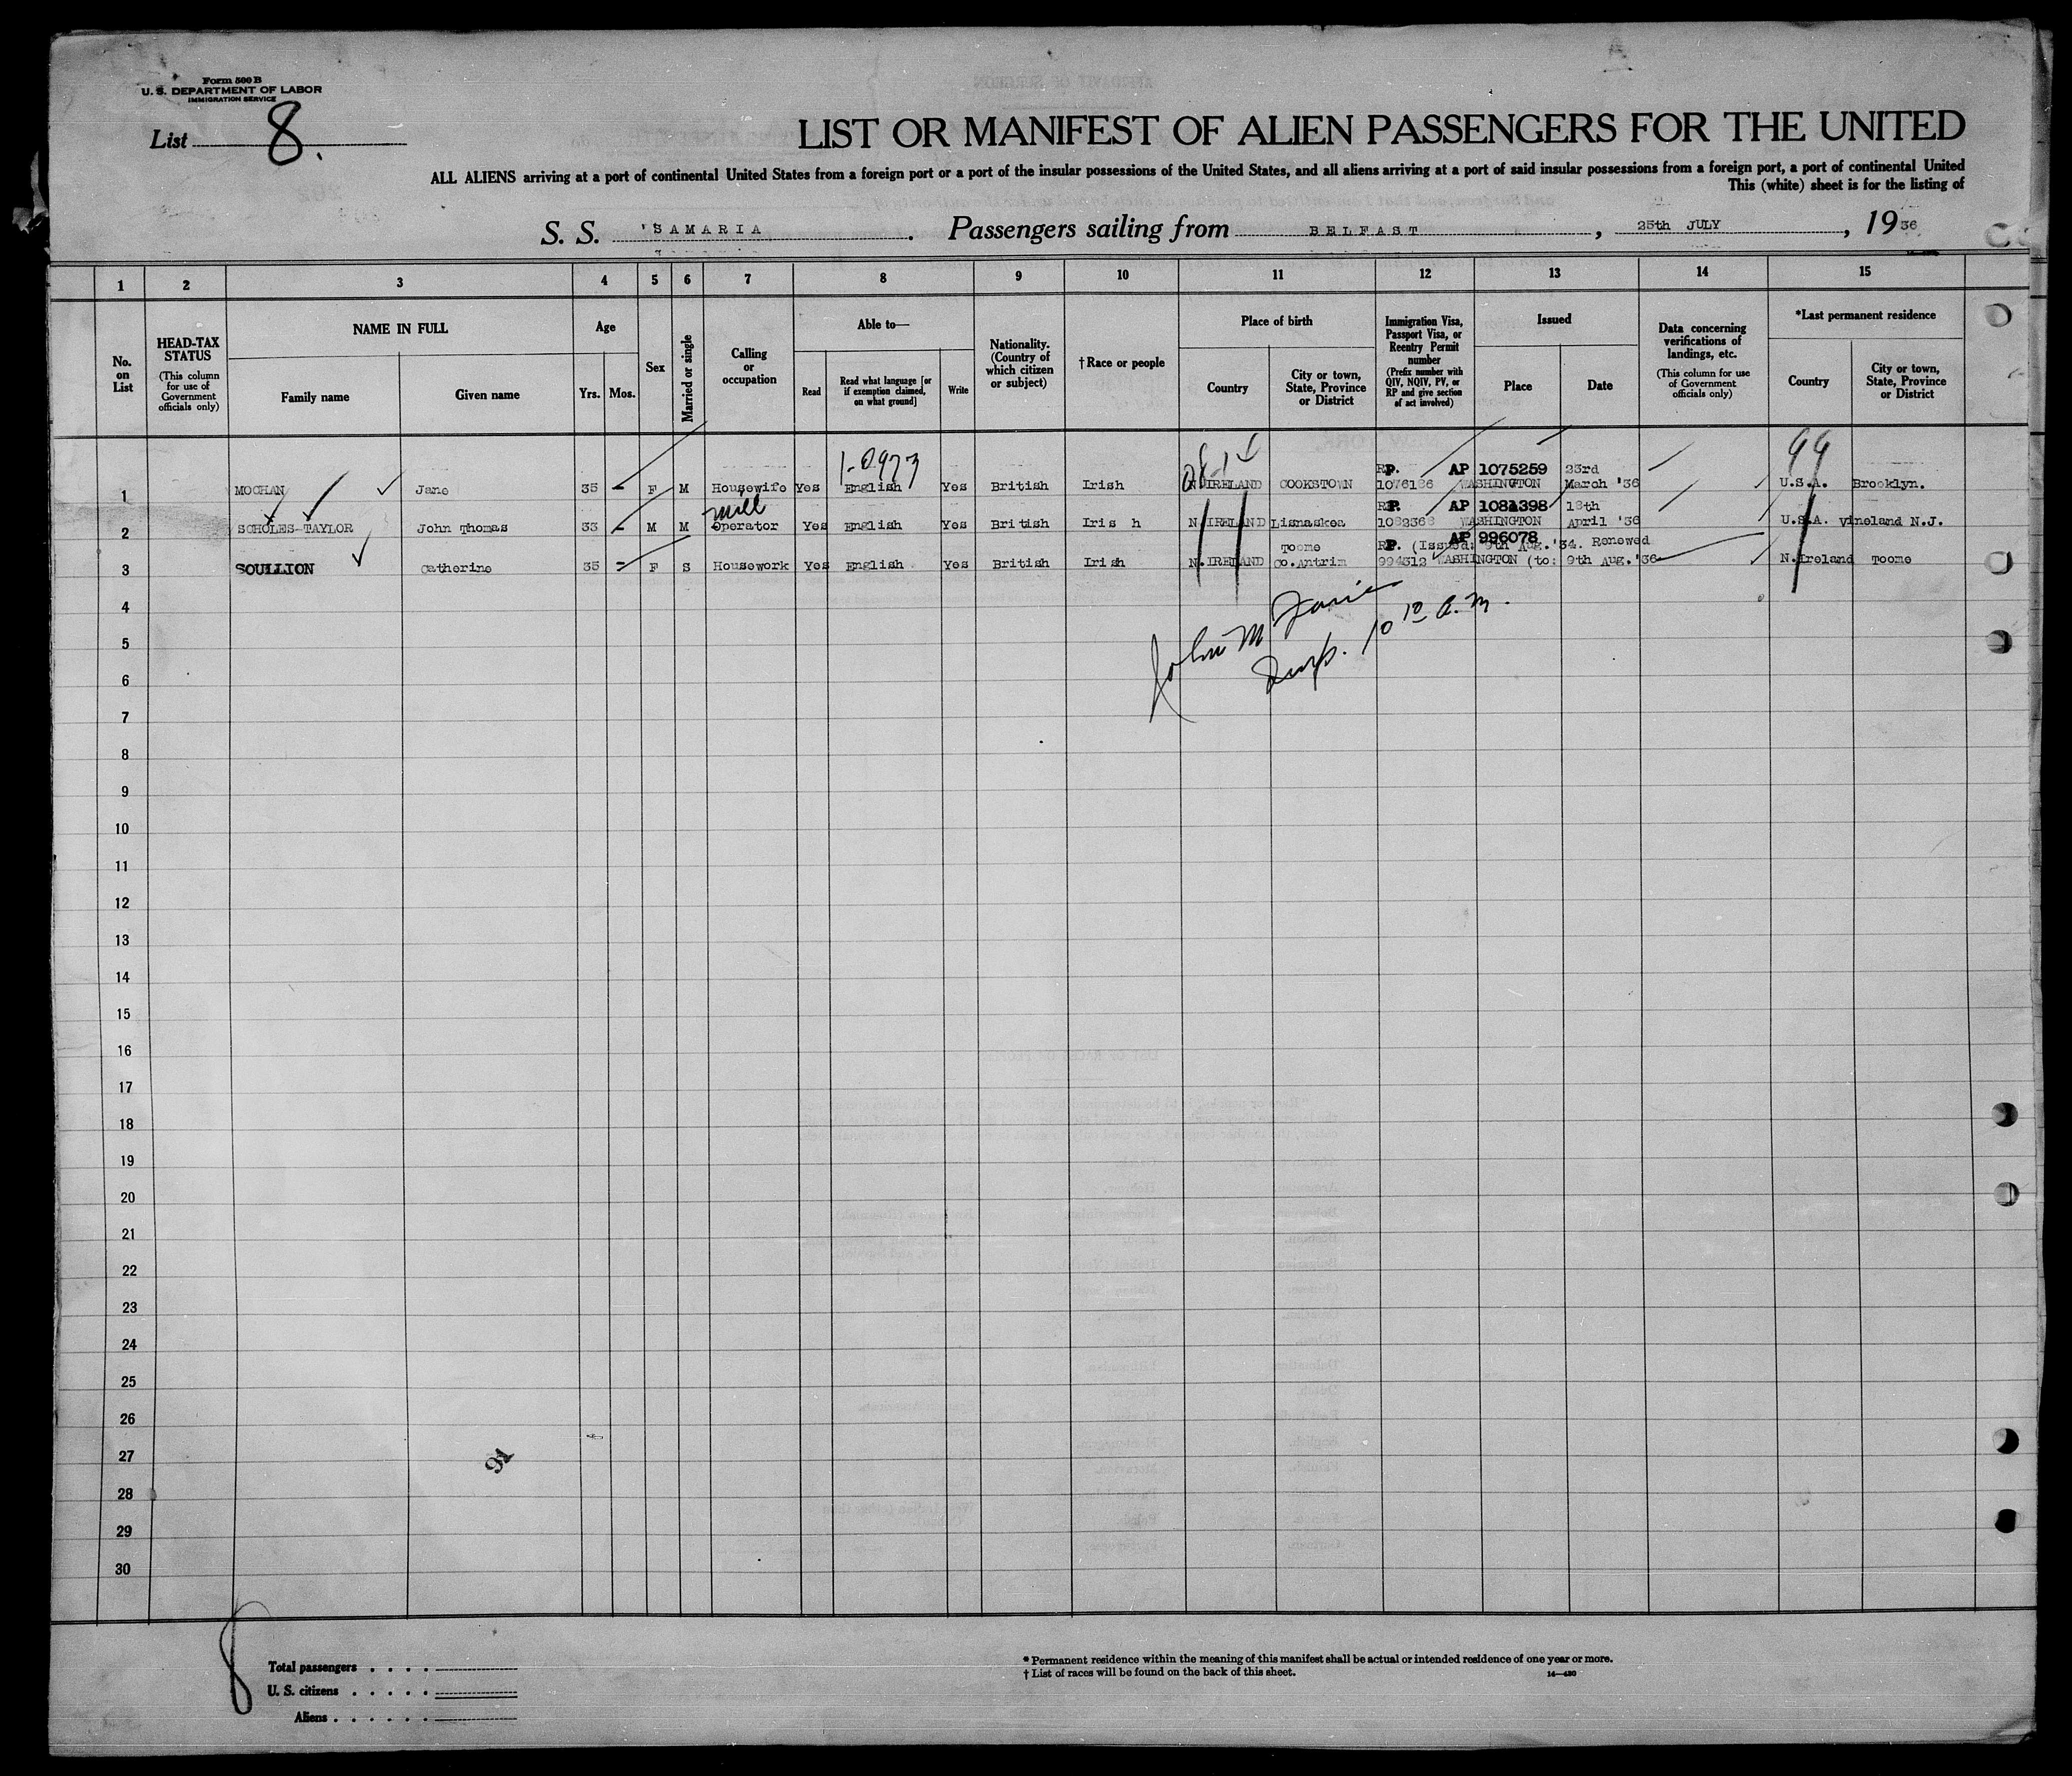 Form 500 B
U. S. DEPARTMENT OF LABOR
IMMIGRATION SERVICE
List 8.
LIST OR MANIFEST OF ALIEN PASSENGERS FOR THE UNITED
ALL ALIENS arriving at a port of continental United States from a foreign port or a port of the insular possessions of the United States, and all aliens arriving at a port of said insular possessions from a foreign port, a port of continental United
This (white) sheet is for the listing of
S. S. 'SAMARIA . Passengers sailing from BELFAST , 25th JULY , 19 36
1 2 3 4 5 6 7 8 9 10 11 12 13 14 15
No. on List
HEAD-TAX STATUS
(This column for use of Government officials only)
NAME IN FULL
Family name Given name
Age
Yrs. Mos.
Sex
Married or single
Calling or occupation
Able to—
Read Read what language [or if exemption claimed, on what ground] Write
Nationality. (Country of which citizen or subject)
†Race or people
Place of birth
Country City or town, State, Province or District
Immigration Visa, Passport Visa, or Reentry Permit number
(Prefix number with QIV, NQIV, PV, or RP and give section of act involved)
Issued
Place Date
Data concerning verifications of landings, etc.
(This column for use of Government officials only)
*Last permanent residence
Country City or town, State, Province or District
1-0973 99
RP. AP 1075259 23rd
1 MOCHAN Jane 35 - F M Housewife Yes English Yes British Irish N IRELAND COOKSTOWN 1076186 WASHINGTON March '36 U.S.A. Brooklyn.
mill RP. AP 1081398 18th
2 SCHOLES-TAYLOR John Thomas 33 - M M Operator Yes English Yes British Iris h N IRELAND Lisnaskea 1082368 WASHINGTON April '36 U.S.A. vineland N.J.
AP 996078
Toome RP. (Issued: 9th Aug.'34. Renewed
3 SOULLION Catherine 35 - F S Housework Yes English Yes British Irish N.IRELAND Co.Antrim 994312 WASHINGTON (to: 9th Aug.'36 N.Ireland Toome
4
John M
5
Insp. 10 10 a.m.
6
7
8
9
10
11
12
13
14
15
16
17
18
19
20
21
22
23
24
25
26
27
91
28
29
30
8
Total passengers
U. S. citizens
Aliens
* Permanent residence within the meaning of this manifest shall be actual or intended residence of one year or more.
† List of races will be found on the back of this sheet. 14—430